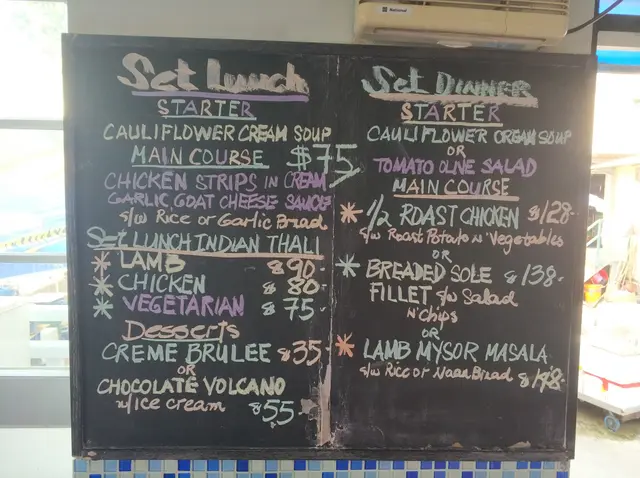 National
Set Lunch
STARTER
CAULIFLOWER CREAM SOUP
MAIN COURSE $75/
CHICKEN STRIPS IN CREAM
GARLIC, GOAT CHEESE SAUCE
s/w Rice or Garlic Bread
Set LUNCH INDIAN THALI
* LAMB $90-
* CHICKEN $80-
* VEGETARIAN $75-
Desserts
CREME BRULEE $35-
OR
CHOCOLATE VOLCANO
w/ice cream $55
Set DINNER
STARTER
CAULIFLOWER CREAM SOUP
OR
TOMATO OLIVE SALAD
MAIN COURSE
* 1/2 ROAST CHICKEN $128-
s/w Roast Potato n Vegetables
OR
* BREADED SOLE $138-
FILLET s/w Salad
N'Chips
OR
* LAMB MYSOR MASALA
s/w Rice or Naan Bread $148-